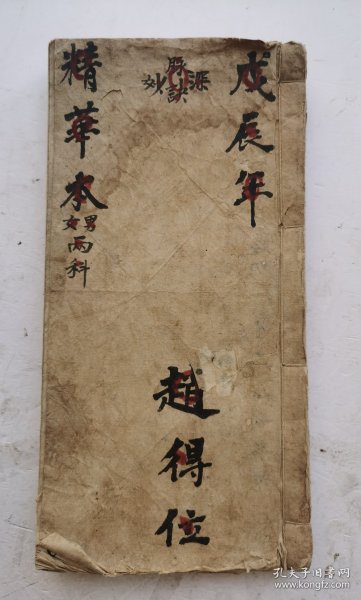 戊辰年
深
脉訣
妙
精華本
男女
兩科
趙得位
孔夫子旧书网